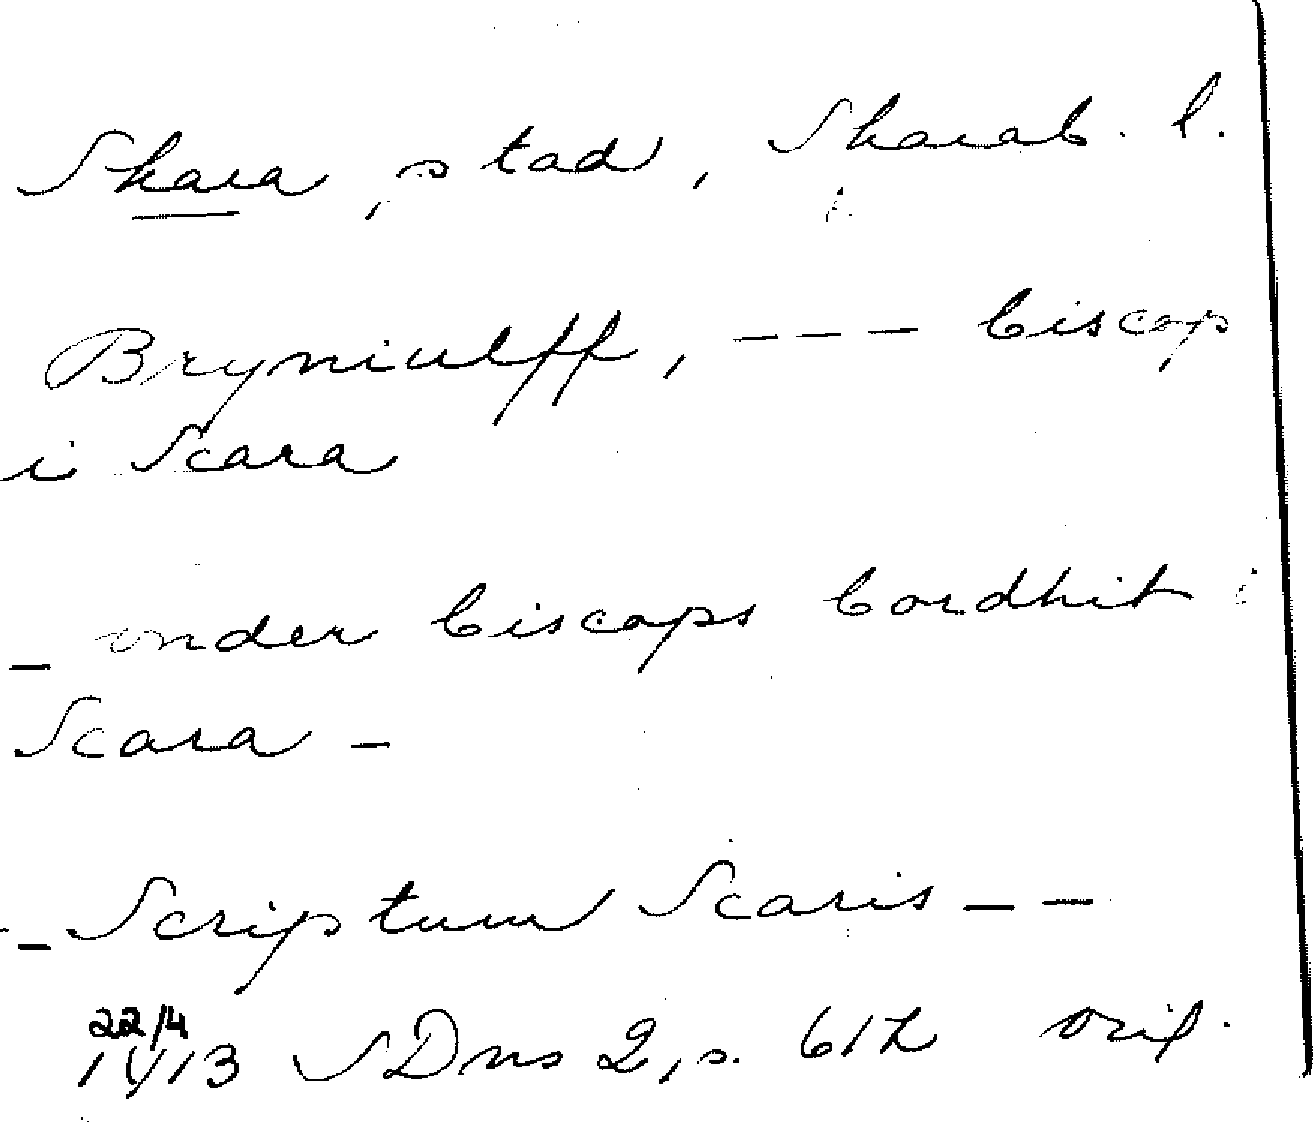 Skara, stad, Skarab. l.
Bryniulff, --- biscop
i Scara
_ vnder biscops bordhit i
Scara -
-- Scriptum Scaris --
22/4
1413 SDns 2, s. 612 orig.